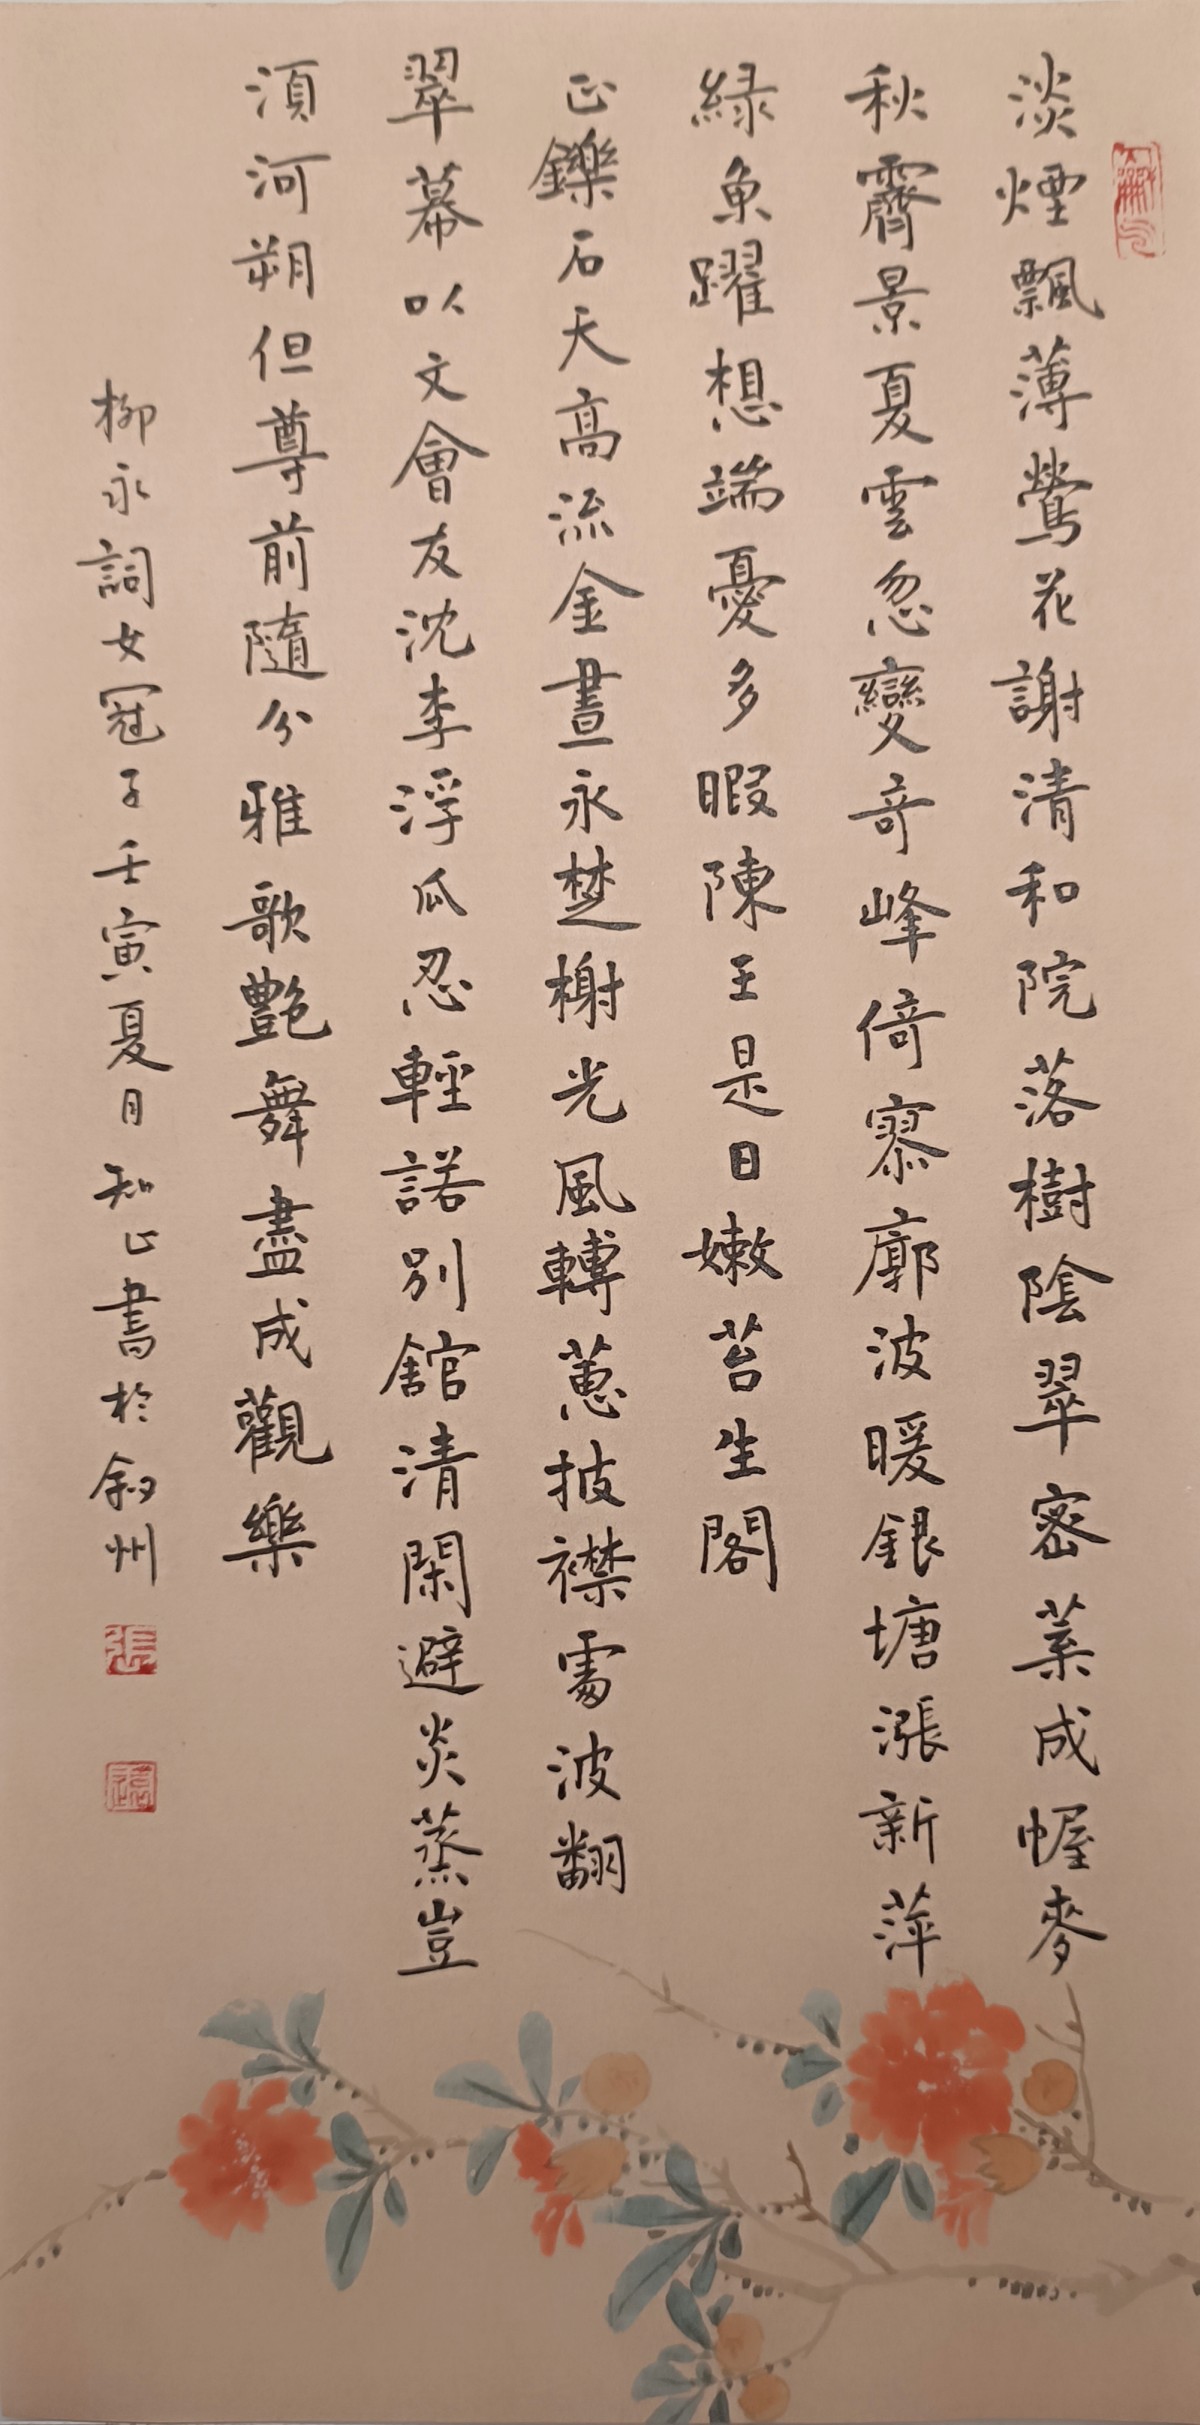 淡煙飄薄鶯花謝清和院落樹陰翠密葉成幄麥
秋霽景夏雲忽變奇峰倚寥廓波暖銀塘漲新萍
綠魚躍想端憂多暇陳王是日嫩苔生閣
正鑠石天高流金晝永楚榭光風轉蕙披襟處波翻
翠幕以文會友沈李浮瓜忍輕諾別館清閑避炎蒸豈
須河朔但尊前隨分雅歌艷舞盡成觀樂
柳永詞女冠子壬寅夏月知止書於敘州
張